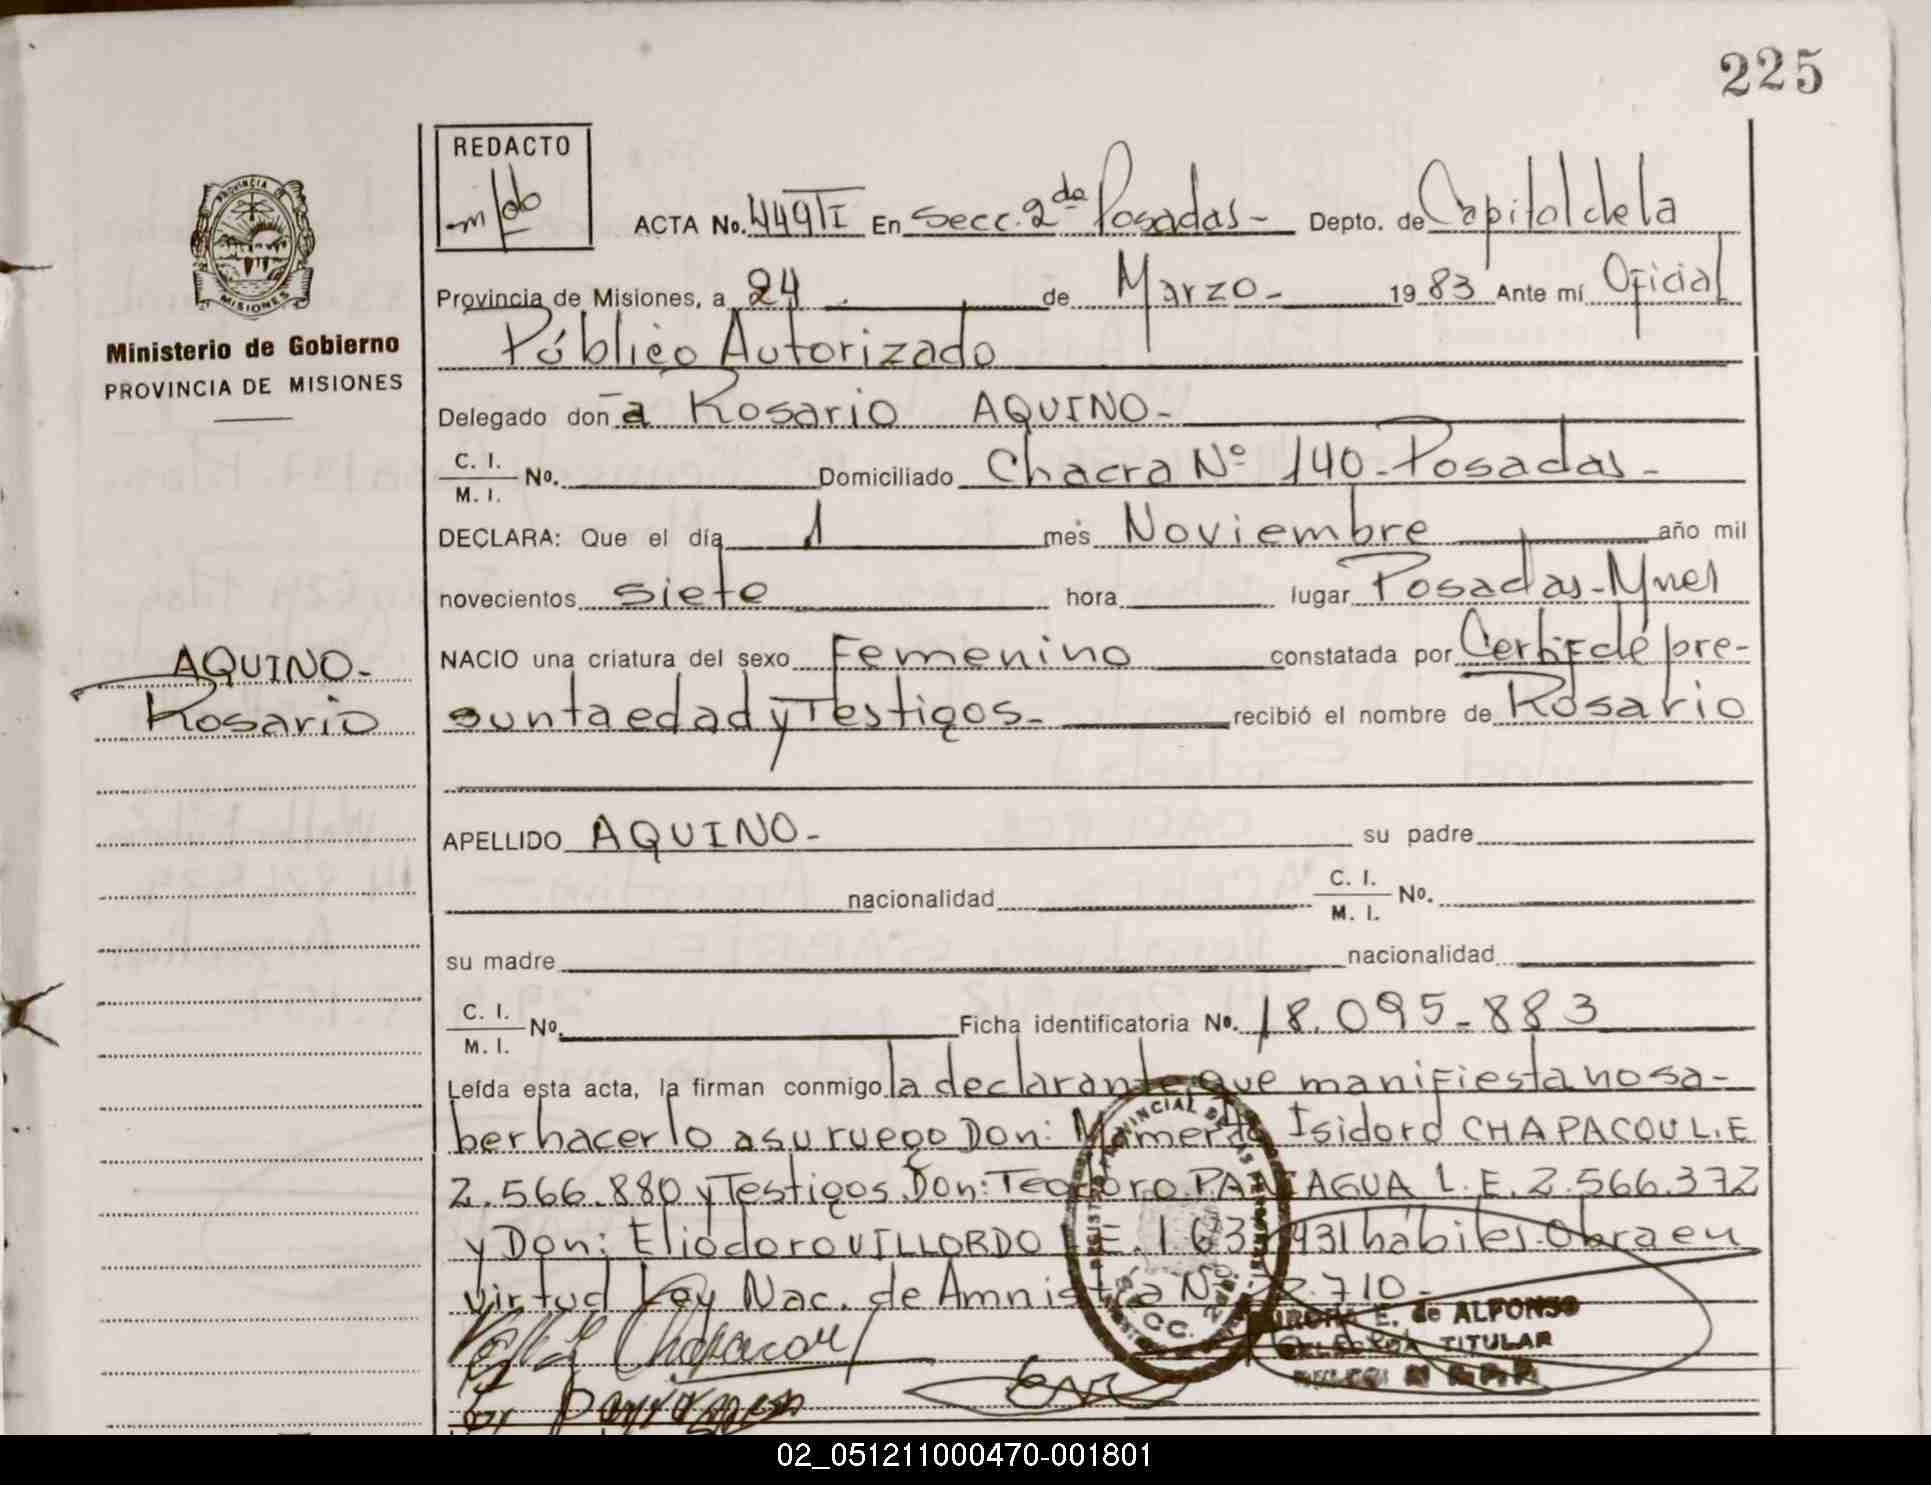 225
REDACTO
ACTA No. 449 TI En Secc. 2da Posadas- Depto. de Capital de la
Provincia de Misiones, a 24 de Marzo- 1983 Ante mí Oficial
Público Autorizado
Ministerio de Gobierno
PROVINCIA DE MISIONES
Delegado don a Rosario AQUINO-
C. I.
M. I. No. Domiciliado Chacra Nº 140-Posadas-
DECLARA: Que el día 1 mes Noviembre año mil
novecientos siete hora lugar Posadas-Mnes
NACIO una criatura del sexo Femenino constatada por Certif de pre-
sunta edad y Testigos- recibió el nombre de Rosario
AQUINO-
Rosario
APELLIDO AQUINO- su padre
nacionalidad C. I.
M. I. No.
su madre nacionalidad
C. I.
M. I. No. Ficha identificatoria No. 18.095-883
Leída esta acta, la firman conmigo la declarante que manifiesta no sa-
ber hacerlo a su ruego Don: Mamerto Isidoro CHAPACOU L.E
2.566.880 y Testigos Don: Teodoro PANIAGUA L.E. 2.566.372
y Don: Eliodoro VILLORDO L.E. hábiles. Obra en
virtud Ley Nac. de Amnistía Nº 22.710-
E. de ALFONSO
TITULAR
02_051211000470-001801